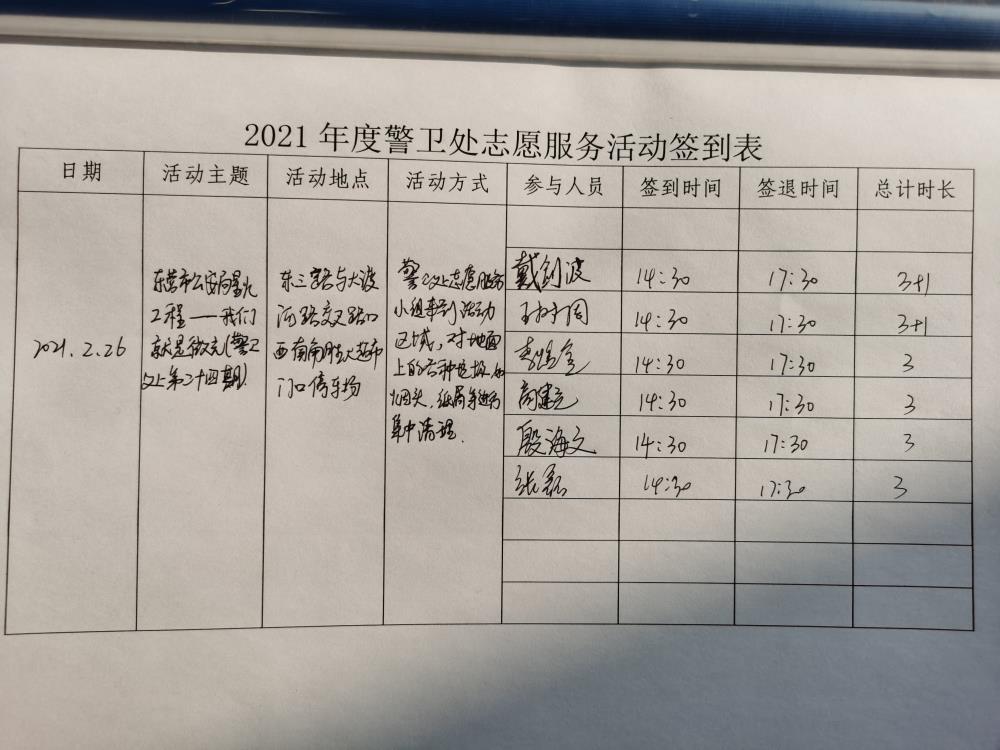 2021 年度警卫处志愿服务活动签到表
日期 活动主题 活动地点 活动方式 参与人员 签到时间 签退时间 总计时长
2021.2.26
东营市公安局星火
工程——我们
就是微光(警卫
处第二十四期)
东三路与大渡
河路交叉路口
西南角胜大超市
门口停车场
警卫处志愿服务
小组来到活动
区域,对地面
上的各种垃圾如
烟头,纸屑等进行
集中清理.
戴剑波 14:30 17:30 3+1
14:30 17:30 3+1
14:30 17:30 3
14:30 17:30 3
殷海文 14:30 17:30 3
张磊 14:30 17:30 3